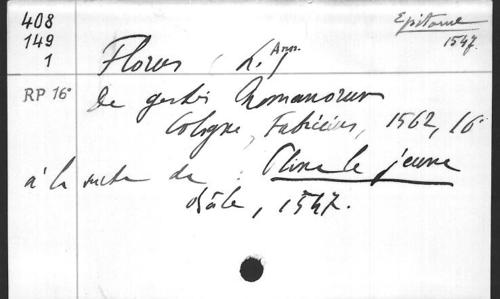 408
149
1
Epitome
1547.
Florus, L. Ann.
RP 16°
De gestis Romanorum
Cologne, Fabricius, 1562, 16°
à la suite de : Pline le jeune
Bâle, 1547.